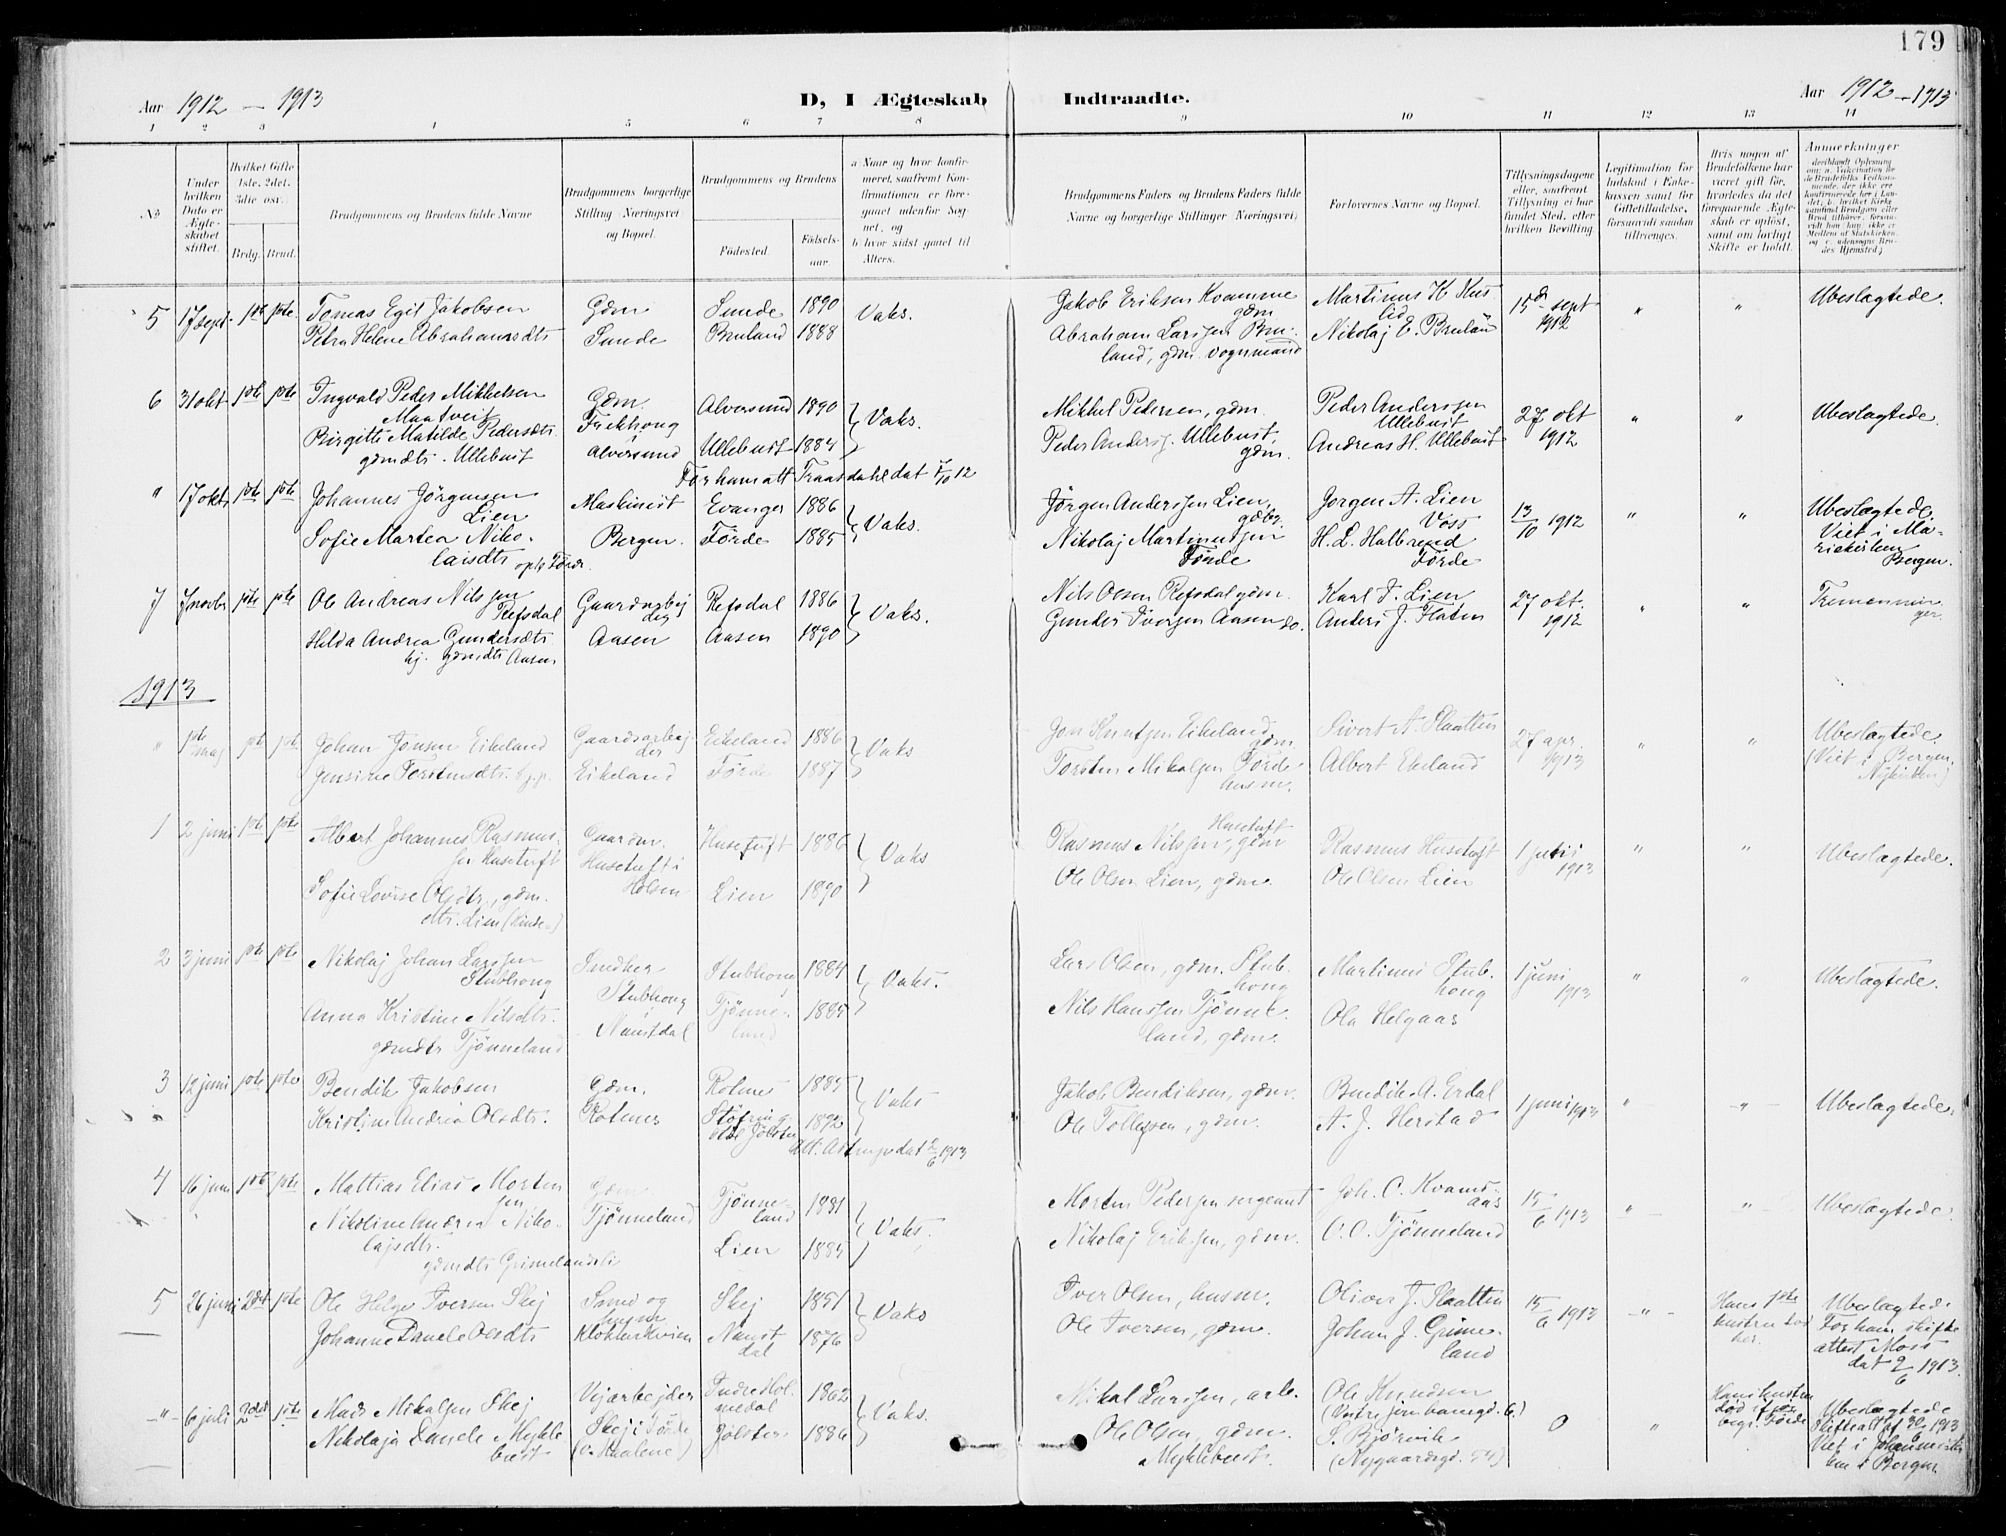 179
Aar 1912 - 1913
D, I Ægteskab Indtraadte.
Aar 1912 - 1913
1 2 3 4 5 6 7 8 9 10 11 12 13 14
No
Under hvilken Dato er Ægteskabet stiftet.
Hvilket Gifte 1ste, 2det, 3die osv.
Brdg. Brud.
Brudgommens og Brudens fulde Navne
Brudgommens borgerlige Stilling (Næringsvei) og Bopæl.
Brudgommens og Brudens
Födested.
Födselsaar
a Naar og hvor konfirmeret, saafremt Konfirmationen er foregaaet udenfor Sognet, og
b hvor sidst gaaet til Alters.
Brudgommens Faders og Brudens Faders fulde Navne og borgerlige Stillinger (Næringsvei)
Forlovernes Navne og Bopæl.
Tillysningsdagene eller, saafremt Tillysning ei har fundet Sted, efter hvilken Bevilling.
Legitimation for Indskud i Enkekassen samt for Giftetilladelse, forsaavidt saadan tiltrænges.
Hvis nogen af Brudefolkene har været gift för, hvorledes da det foregaaende Ægteskab er oplöst, samt om lovligt Skifte er holdt.
Anmerkninger
5 17 sept. 1ste 1ste Tomas Egil Jakobsen Gdm Sunde 1890 Vaks. Jakob Eriksen Kvamme gdm Martinus K Huslid 15de sept 1912 " " Ubeslægtede.
Petra Helene Abrahamsdtr Sunde Bruland 1888 Abraham Larssen Bruland, gdm. vognmand Nikolaj E. Bruland
6 31 okt 1ste 1ste Ingvald Peder Mikkelsen Maatveit Gdm. Alversund 1890 Vaks. Mikkel Pedersen, gdm. Peder Anderssen Ullebust 27 okt 1912 " " Ubeslægtede.
Birgitte Matilde Pedersdtr. gdmdtr. Ullebust Alversund Ullebust 1884 Peder Anderss. Ullebust, gdm. Andreas H. Ullebust
For ham att Traasdahl dat 7/10 12
" 17 okt 1ste 1ste Johannes Jörgensen Lien Maskinist Evanger 1886 Vaks. Jörgen Anderssen Lien, gdbr. Jorgen A. Lien Voss 13/10 1912 " " Ubeslægtede Viet i Mariekirken Bergen.
Sofie Martea Nikolaisdtr Bergen. Förde 1885 Nikolaj Martinussen Förde H. L. Halbrend Förde
7 7 novbr 1ste 1ste Ole Andreas Nilssen Refsdal Gaardsarbejder Refsdal 1886 Vaks. Nils Olsen Refsdal gdm. Karl J. Lien 27 okt. 1912 " " Tremenninger
Hilda Andrea Gundersdtr. hj. gdmdtr Aasen Aasen Aasen 1890 Gunder Iversen Aasen do. Anders J. Flaten
1913
" 1ste maj 1ste 1ste Johan Jonsen Eikeland Gaardsarbejder Eikeland 1886 Vaks Jon Knutsen Eikeland gdm. Sivert A. Slaatten 27 apr. 1913 " " Ubeslægtede. (Viet i Bergen. Nykirken)
Gensine Torstensdtr. Eikeland Förde 1887 Torsten Mikalsen Förde husm. Albert Ekeland
1 2 juni 1ste 1ste Albert Johannes Rasmussen Husetuft Gaardm. Husetuft i Holsen Husetuft 1886 Vaks Rasmus Nilssen, gdm Husetuft Rasmus Husetuft 1 juni 1913 " " Ubeslægtede.
Sofie Lovise Olsdtr., gdm.dtr. Lien Lien 1890 Ole Olsen Lien, gdm. Ole Olsen Lien
2 3 juni 1ste 1ste Nikolaj Johan Larssen Stubhong Stubhong Stubhong 1884 Vaks. Lars Olsen, gdm. Stubhong Martinus Stubhong 1 juni 1913 " " Ubeslægtede.
Anna Kristine Nilsdtr. gdmdtr Tjönneland Naustdal Tjönneland 1885 Nils Hanssen Tjönneland, gdm. Ola Helgaas
3 12 juni 1ste 1ste Bendik Jakobsen Gdm. Rotnes 1885 Vaks Jakob Bendiksen, gdm. Bendik A. Erdal 1 juni 1913 " " Ubeslægtede.
Kristine Andrea Olsdtr. Rotnes Jölster 1892 Ole Tollefsen, gdm. A. J. Herstad
Att. Astrup dat 2/6 1913
4 16 juni 1ste 1ste Mattias Elias Mortensen Gdm Tjönneland 1881 Vaks. Morten Pedersen sergeant Joh. C. Kvamsaas 15/6 1913 " " Ubeslægtede.
Nikoline Andrea Nikolajsdtr. gdmdtr Grimelandsli Tjönneland Lien 1885 Nikolaj Erikssen, gdm. O. O. Tjönneland
5 26 juni 2det 1ste Ole Helge Iversen Skej Smed og husm Skej 1851 Vaks Iver Olsen, husm. Oliver J. Slaatten 15/6 1913 " Hans 1ste hustru död her. Ubeslægtede For ham skifteattest Moss dat 2/6 1913
Johanne Daniele Olsdtr Naustdal 1876 Ole Iversen, gdm. Johan J. Grimeland
" 6 juli 2det 1ste Mads Mikalsen Skej Vejarbejder Indre Holmedal 1862 Vaks. Mikal Larssen, arb. Ole Knudsen 0 " Hans hustru död Förde Ubeslægtede Skifteatt af 30/6 1913 Viet i Johanneskirken i Bergen.
Nikolaja Daniele Myklebust Skej i Förde Jölster 1886 Ole Olsen, gdm. Myklebust. S. Björvik (Nygaardsgd. 54)